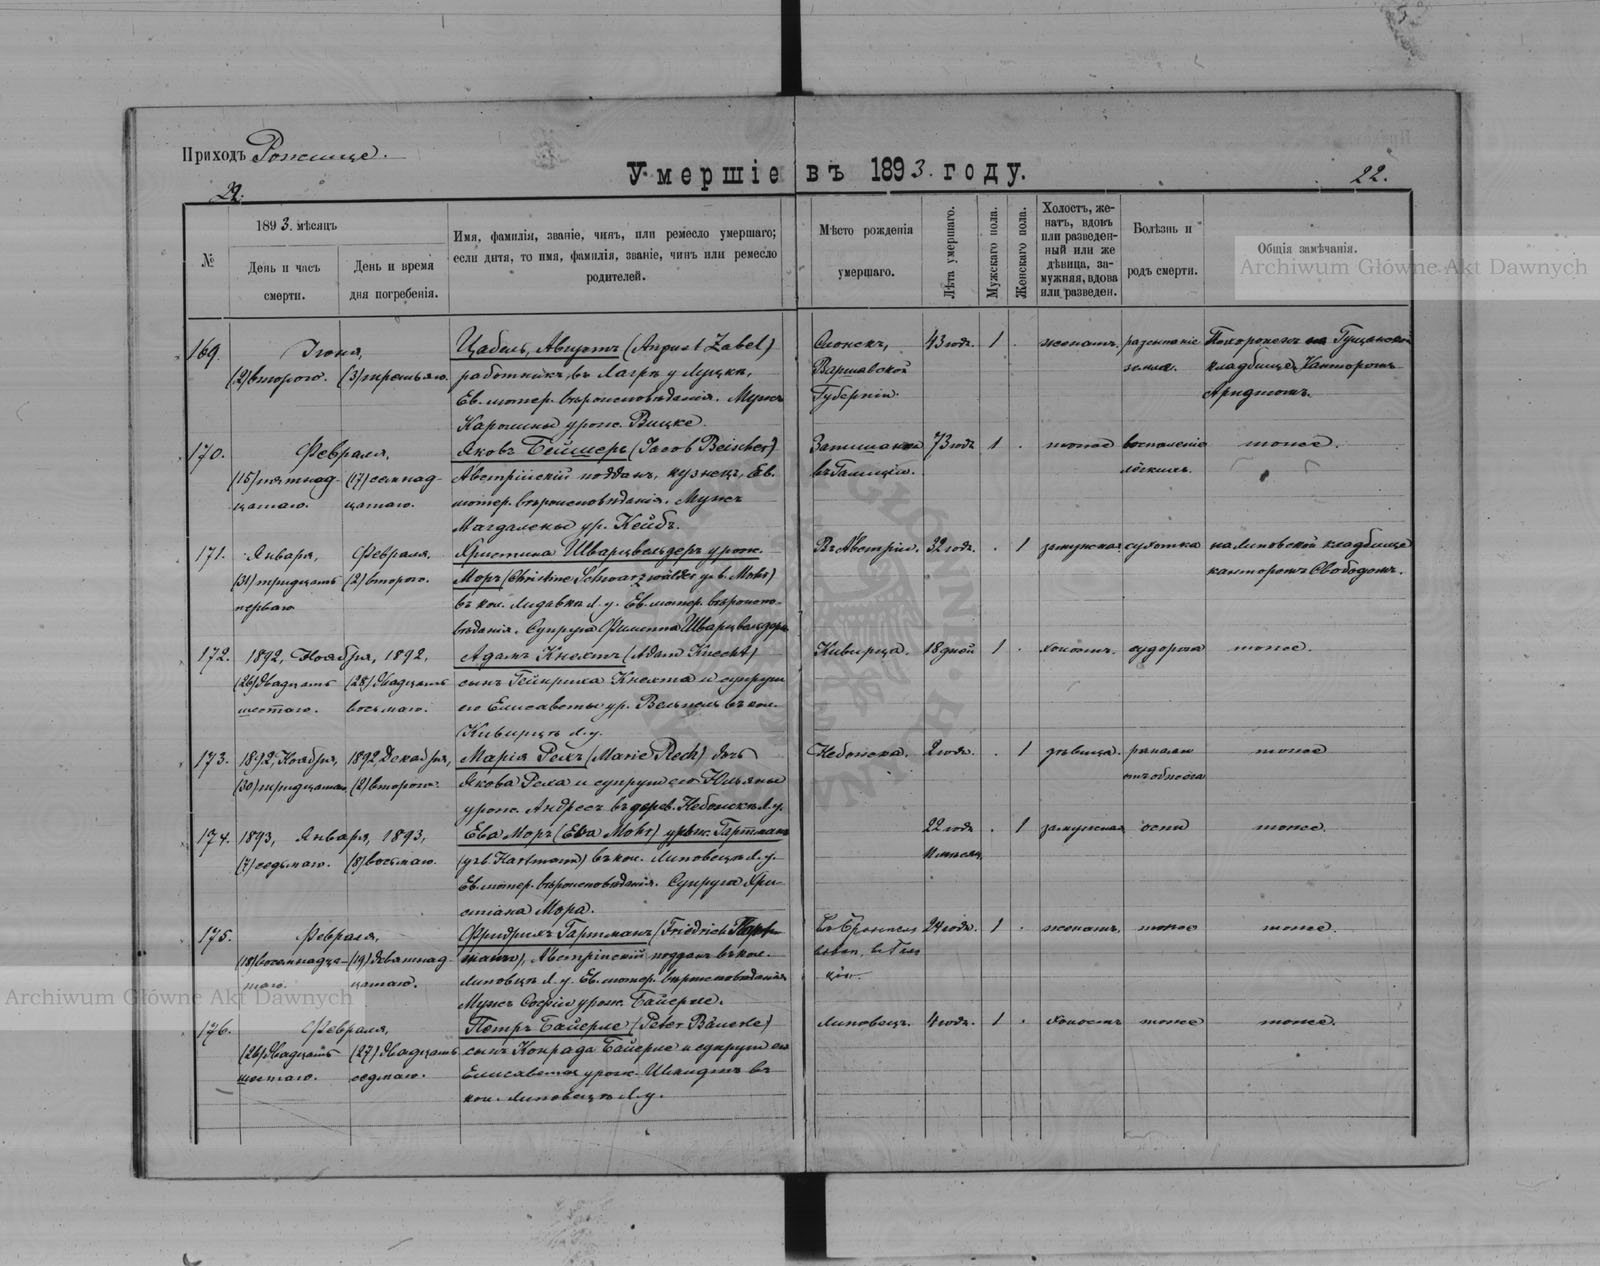 Приходъ Рожище.
Умершіе въ 1893. году.
22.
22.
№
1893. мѣсяцъ
День и часъ смерти.
День и время дня погребенія.
Имя, фамилія, званіе, чинъ, или ремесло умершаго; если дитя, то имя, фамилія, званіе, чинъ или ремесло родителей.
Мѣсто рожденія умершаго.
Лѣта умершаго.
Мужскаго пола.
Женскаго пола.
Холостъ, женатъ, вдовъ или разведенный или же дѣвица, замужняя, вдова или разведен.
Болѣзнь и родъ смерти.
Общія замѣчанія.
Archiwum Główne Akt Dawnych
169.
Іюня,
(2) второго.
(3) третьяго.
Цабель, Августъ (August Zabel)
работникъ въ Лагрѣ у Луцка,
Ев. лютер. вѣроисповѣданія. Мужъ
Каролины урож. Рицке.
Варшавской
Губерніи.
43 годъ.
1
.
женатъ.
Похороненъ на
кладбищѣ Канторомъ
170.
Февраля,
(15) пятнад-
цатаго.
(17) семнад-
цатаго.
Яковъ Бейшеръ (Jacob Beischer)
Австрійскій поддан. кузнецъ, Ев.
лютер. вѣроисповѣданія. Мужъ
Магдалены ур. Кейбъ.
въ Галиціи.
73 годъ
1
.
тоже
воспаленіе
легкихъ.
тоже.
171.
Января,
(31) тридцать
перваго
Февраля,
(2) второго.
Христина Шварцвельдеръ урож.
Моръ (Christine Schwarzwälder geb. Mohr)
въ кол. Лидавкѣ Л. у. Ев. лютер. вѣроиспо-
вѣданія. Супруга Филиппа Шварцвельдера
Въ Австріи.
32 годъ.
.
1
замужняя
сухотка
на Липовской кладбище
канторомъ Свободомъ.
172.
1892, Ноября, 1892,
(26) двадцать
шестаго.
(28) двадцать
восьмаго.
Адамъ Кнехтъ (Adam Knecht)
сынъ Гейнриха Кнехта и супруги
его Елисаветы ур. Вельпель въ кол.
Киверцѣ Л. у.
Киверца.
18 дней
1
.
холостъ.
судорога
тоже.
173.
1892, Ноября,
(30) тридцатаго
1892, Декабря,
(2) второго.
Марія Рехъ (Marie Rech) дочь
Якова Реха и супруги его Юльяны
урож. Андресъ въ дерев. Небожкѣ Л. у.
Небожка.
2 года.
.
1
дѣвица.
тоже
174.
1893, Января, 1893,
(7) седьмаго.
(8) восьмаго.
Ева Моръ (Eva Mohr) урож. Гартманъ
(geb. Hartmann) въ кол. Липовецъ Л. у.
Ев. лютер. вѣроисповѣданія. Супруга Хри-
стіана Мора.
22 года
11 мѣсяц.
.
1
замужняя
оспа
тоже.
175.
Февраля,
(18) восемнадца-
таго.
(19) девятнад-
цатаго.
Фридрихъ Гартманъ (Friedrich Hart-
mann), Австрійскій поддан. въ кол.
Липовцѣ Л. у. Ев. лютер. вѣроисповѣданія
Мужъ Софіи урож. Байерле.
24 года.
1
.
женатъ.
тоже
тоже.
Archiwum Główne Akt Dawnych
176.
Февраля,
(26) двадцать
шестаго.
(27) двадцать
седмаго.
Петръ Байерле (Peter Bäuerle)
сынъ Конрада Байерле и супруги его
Елисаветы урож. Шмидтъ въ
кол. Липовецъ Л. у.
Липовецъ.
4 года.
1
.
холостъ
тоже
тоже.